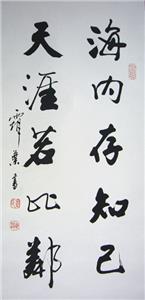 海内存知己
天涯若比鄰
霖葉書